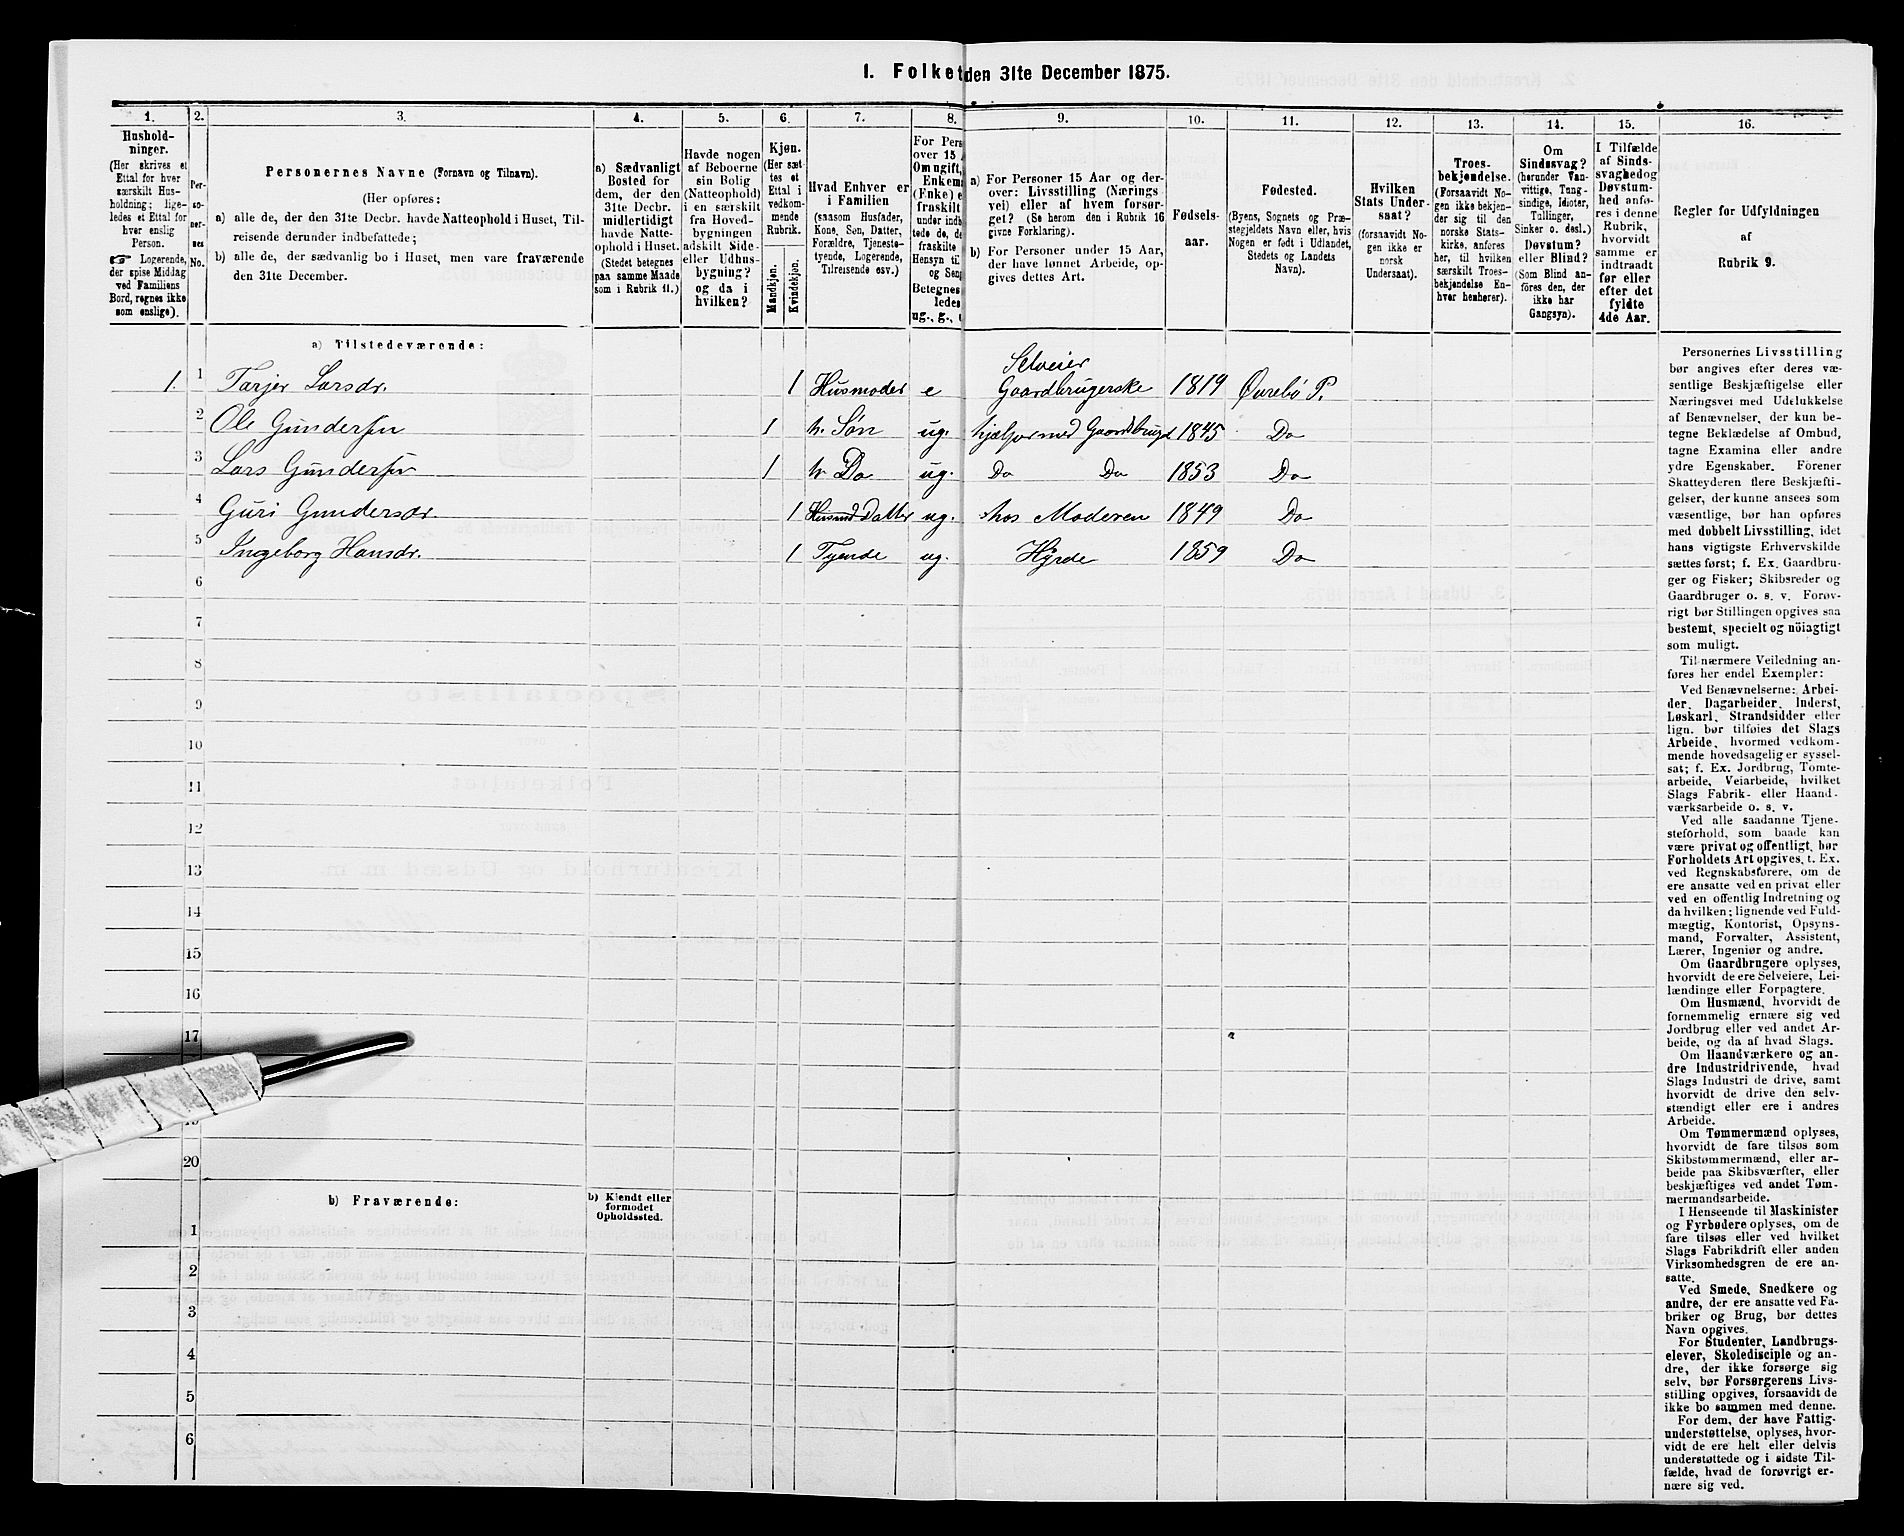 1. Folket den 31te December 1875.
1.
Hushold-
ninger.
(Her skrives et
Ettal for hver
særskilt Hus-
holdning; lige-
ledes et Ettal for
hver enslig
Person.
☞ Logerende,
der spise Middag
ved Familiens
Bord, regnes ikke
som enslige).
2.
Per-
so-
ner-
nes
No.
3.
Personernes Navne (Fornavn og Tilnavn).
(Her opføres:
a) alle de, der den 31te Decbr. havde Natteophold i Huset, Til-
reisende derunder indbefattede;
b) alle de, der sædvanlig bo i Huset, men vare fraværende
den 31te December.
4.
a) Sædvanligt
Bosted for
dem, der den
31te Decbr.
midlertidigt
havde Natte-
ophold i Huset.
(Stedet betegnes
paa samme Maade
som i Rubrik 11.)
5.
Havde nogen
af Beboerne
sin Bolig
(Natteophold)
i en særskilt
fra Hoved-
bygningen
adskilt Side-
eller Udhus-
bygning?
og da i
hvilken?
6.
Kjøn.
(Her sæt-
tes et
Ettal i
vedkom-
mende
Rubrik.
Mandkjøn.
Kvindekjøn.
7.
Hvad Enhver er
i Familien
(saasom Husfader,
Kone, Søn, Datter,
Forældre, Tjeneste-
tyende, Logerende,
Tilreisende osv.)
8.
For Pers
over 15 A
Om ugift,
Enkem
(Enke) e
fraskilt
under indb
tede de, de
fraskilte
Hensyn til
og Seng
Betegnes
ledes
ug., g.,
9.
a) For Personer 15 Aar og der-
over: Livsstilling (Nærings
vei) eller af hvem forsør-
get? (Se herom den i Rubrik 16
givne Forklaring).
b) For Personer under 15 Aar,
der have lønnet Arbeide, op-
gives dettes Art.
10.
Fødsels-
aar.
11.
Fødested.
(Byens, Sognets og Præ-
stegjeldets Navn eller, hvis
Nogen er født i Udlandet,
Stedets og Landets
Navn).
12.
Hvilken
Stats Under-
saat?
(forsaavidt No-
gen ikke er
norsk
Undersaat).
13.
Troes-
bekjendelse.
(Forsaavidt No-
gen ikke bekjen-
der sig til den
norske Stats-
kirke, anføres
her, til hvilken
særskilt Troes-
bekjendelse En-
hver henhører).
14.
Om
Sindssvag?
(herunder Van-
vittige, Tung-
sindige, Idioter,
Tullinger,
Sinker o. desl.)
Døvstum?
eller Blind?
(Som Blind an-
føres den, der
ikke har
Gangsyn).
15.
I Tilfælde
af Sinds-
svaghed og
Døvstum-
hed anfø-
res i denne
Rubrik,
hvorvidt
samme er
indtraadt
før eller
efter det
fyldte
4de Aar.
16.
Regler for Udfyldningen
af
Rubrik 9.
a) Tilstedeværende:
Selveier
1. 1 Tarjer Larsdr. 1 Husmoder e Gaardbrugerske 1819 Øvrebø P.
2 Ole Gundersen 1 h. Søn ug. hjælper med Gaardsbruget 1845 Do
3 Lars Gundersen 1 h Do ug. Do Do 1853 Do
4 Guri Gundersdr. 1 Datter ug. hos Moderen 1849 Do
5 Ingeborg Hansdr. 1 Tyende ug. Hyrde 1859 Do
6
7
8
9
10
11
12
13
14
15
16
17
19
20
b) Fraværende:
b) Kjendt eller
formodet
Opholdssted.
1
2
3
4
5
6
Personernes Livsstilling
bør angives efter deres væ-
sentlige Beskjæftigelse eller
Næringsvei med Udelukkelse
af Benævnelser, der kun be-
tegne Beklædelse af Ombud,
tagne Examina eller andre
ydre Egenskaber. Førener
Skatteyderen flere Beskjæfti-
gelser, der kunne ansees som
væsentlige, bør han opføres
med dobbelt Livsstilling, idet
hans vigtigste Erhvervskilde
sættes først; f. Ex. Gaardbru-
ger og Fisker; Skibsreder og
Gaardbruger o. s. v. Forøv-
rigt bør Stillingen opgives saa
bestemt, specielt og nöiagtigt
som muligt.
Til nærmere Veiledning an-
føres her endel Exempler:
Ved Benævnelserne: Arbei-
der, Dagarbeider, Inderst,
Løskarl, Strandsidder eller
lign. bør tilføies det Slags
Arbeide, hvormed vedkom-
mende hovedsagelig er syssel-
sat; f. Ex. Jordbrug, Tømte-
arbeide, Veiarbeide, hvilket
Slags Fabrik- eller Haand-
værksarbeide o. s. v.
Ved alle saadanne Tjene-
steforhold, som baade kan
være privat og offentligt, bør
Forholdets Art opgives, t. Ex.
ved Regnskabsførere, om de
ere ansatte ved en privat eller
ved en offentlig Indretning og
da hvilken; lignende ved Fuld-
mægtig, Kontorist, Opsyns-
mand, Forvalter, Assistent,
Lærer, Ingeniør og andre.
Om Gaardbrugere oplyses,
hvorvidt de ere Selveiere, Lei-
lændinge eller Forpagtere.
Om Husmænd, hvorvidt de
fornemmelig ernære sig ved
Jordbrug eller ved andet Ar-
beide, og da af hvad Slags.
Om Haandværkere og an-
dre Industridrivende, hvad
Slags Industri de drive, samt
hvorvidt de drive den selv-
stændigt eller ere i andres
Arbeide.
Om Tømmermænd oplyses,
hvorvidt de fare tilsøs som
Skibstømmermænd, eller ar-
beide paa Skibsværfter, eller
beskjæftiges ved andet Tøm-
mermandsarbeide.
I Henseende til Maskinister
og Fyrbødere oplyses, om de
fare tilsøs eller ved hvilket
Slags Fabrikdrift eller anden
Virksomhedsgren de ere an-
satte.
Ved Smede, Snedkere og
andre, der ere ansatte ved Fa-
briker og Brug, bør dettes
Navn opgives.
For Studenter, Landbrugs-
elever, Skoledisciple og an-
dre, der ikke forsørge sig
selv, bør Forsørgerens Livs-
stilling opgives, forsaavidt de
ikke bo sammen med denne.
For dem, der have Fattig-
understøttelse, oplyses, hvor-
vidt de ere helt eller delvis
understøttede og i sidste Til-
fælde, hvad de forøvrigt er-
nære sig ved.